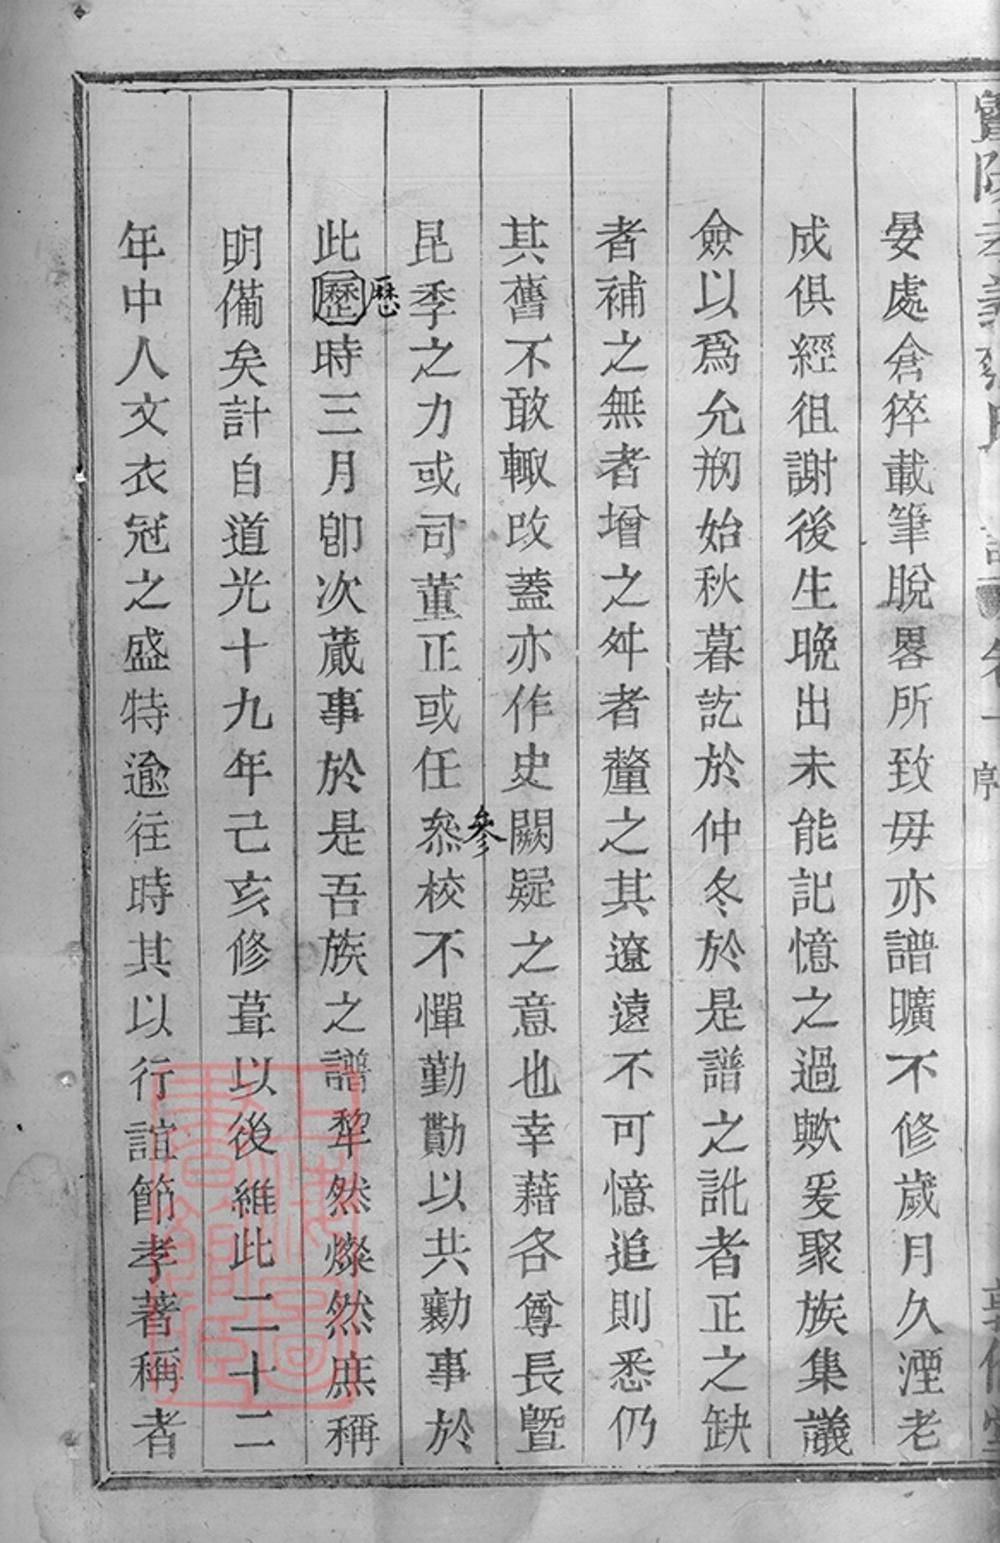 晏處倉猝載筆脫畧所致毋亦譜曠不修歲月久湮老
成俱經徂謝後生晚出未能記憶之過歟爰聚族集議
僉以爲允剏始秋暮訖於仲冬於是譜之訛者正之缺
者補之無者增之舛者釐之其遼遠不可憶追則悉仍
其舊不敢輙改蓋亦作史闕疑之意也幸藉各尊長曁
昆季之力或司董正或任叅校不憚勤勩以共勷事於
參
此歷時三月卽次蕆事於是吾族之譜犂然燦然庶稱
歷
明備矣計自道光十九年己亥修葺以後維此二十二
年中人文衣冠之盛特逾往時其以行誼節孝著稱者
上海圖書館藏